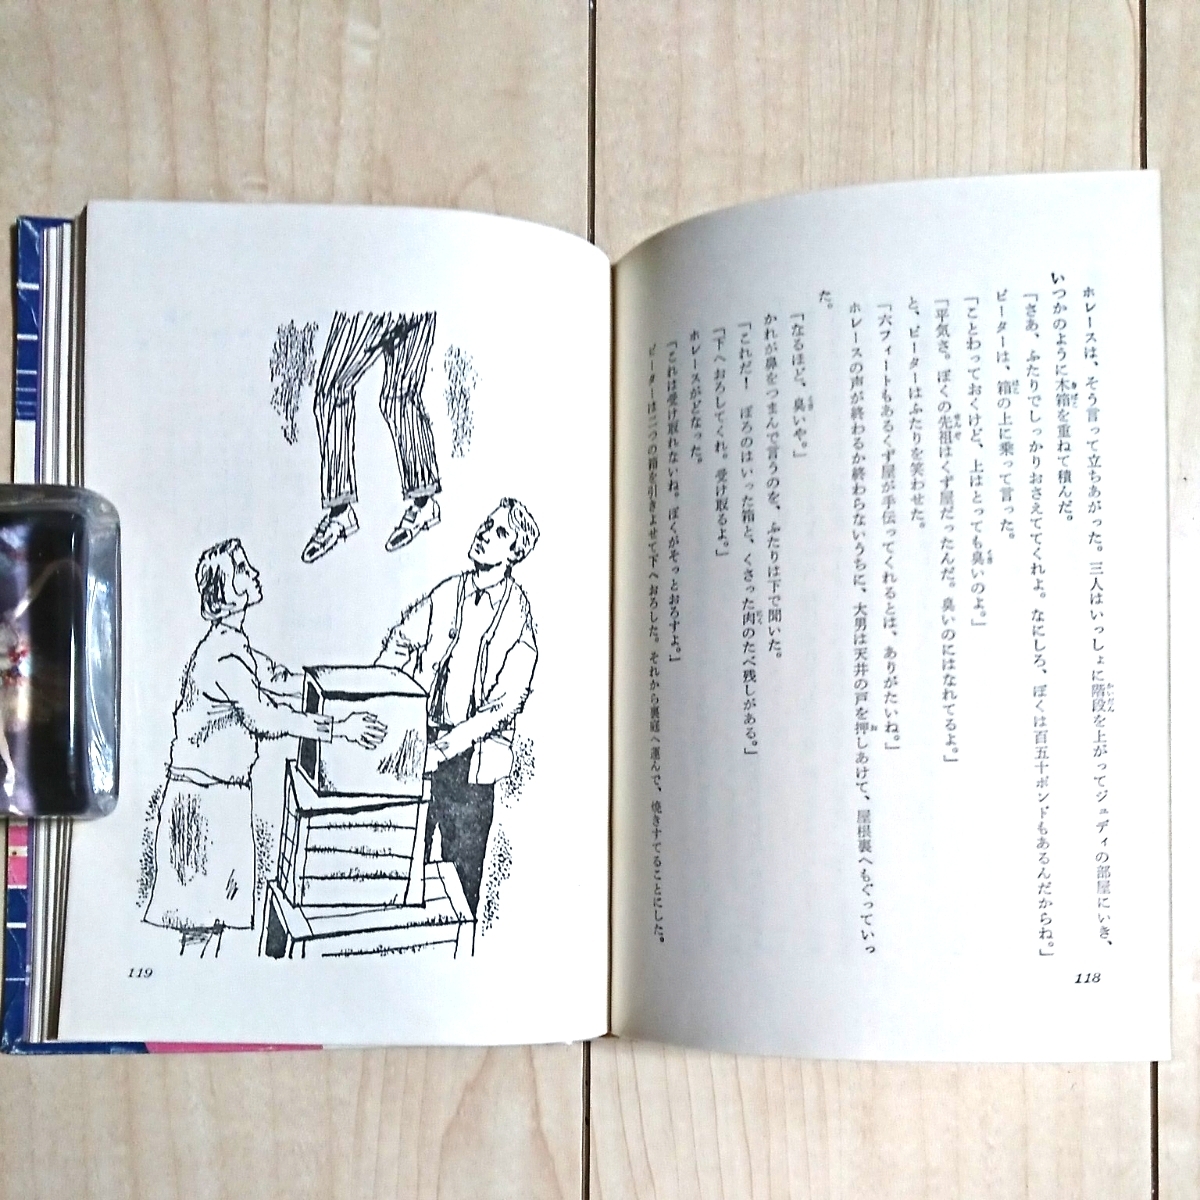 ホレースは、そう言って立ちあがった。三人はいっしょに階段を上がってジュディの部屋にいき、
いつかのように木箱を重ねて積んだ。
「さあ、ふたりでしっかりおさえててくれよ。なにしろ、ぼくは百五十ポンドもあるんだからね。」
ピーターは、箱の上に乗って言った。
「ことわっておくけど、上はとっても臭いのよ。」
「平気さ。ぼくの先祖はくず屋だったんだ。臭いのにはなれてるよ。」
と、ピーターはふたりを笑わせた。
「六フィートもあるくず屋が手伝ってくれるとは、ありがたいね。」
ホレースの声が終わるか終わらないうちに、大男は天井の戸を押しあけて、屋根裏へもぐっていっ
た。
「なるほど、臭いや。」
かれが鼻をつまんで言うのを、ふたりは下で聞いた。
「これだ！　ぼろのはいった箱と、くさった肉のたべ残しがある。」
「下へおろしてくれ。受け取るよ。」
ホレースがどなった。
「これは受け取れないね。ぼくがそっとおろすよ。」
ピーターは二つの箱を引きよせて下へおろした。それから裏庭へ運んで、焼きすてることにした。
118
119